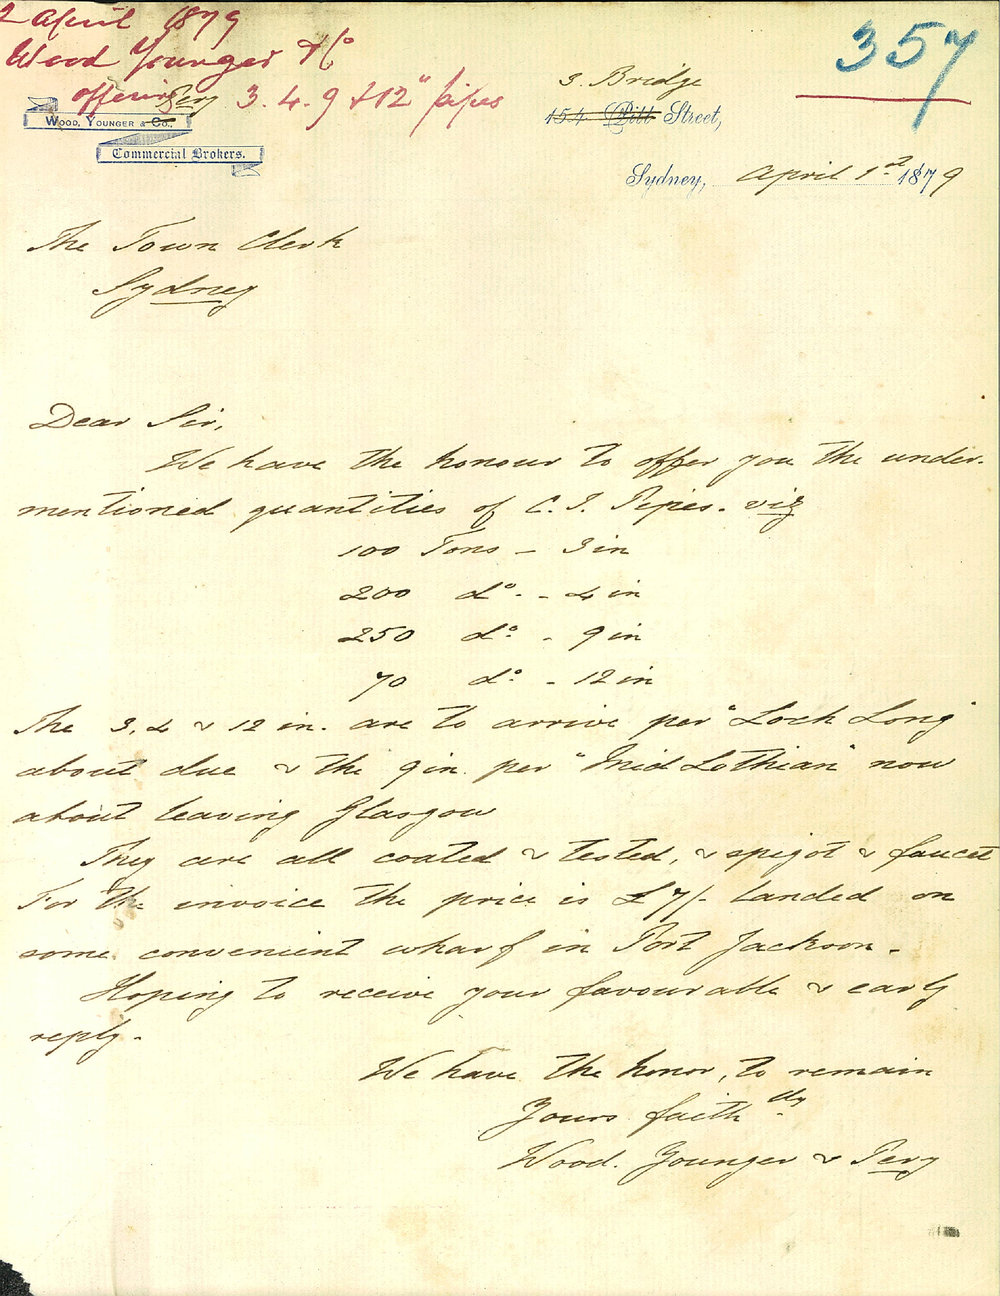 2 April 1879
Wood Younger & Co
offering 3. 4. 9 & 12" pipes
357
Wood, Younger & Co., Pery
Commercial Brokers.
3. Bridge
154 Pitt Street,
Sydney, April 1st 1879
The Town Clerk
Sydney
Dear Sir,
We have the honour to offer you the under-
mentioned quantities of C. I. Pipes. viz
100 Tons - 3 in
200 do. - 4 in
250 do. - 9 in
70 do. - 12 in
The 3, 4 & 12 in. are to arrive per "Loch Long"
about due & the 9 in. per "Mid Lothian" now
about leaving Glasgow
They are all coated & tested, & spigot & faucet
For the invoice the price is £7/- landed on
some convenient wharf in Port Jackson.
Hoping to receive your favourable & early
reply.
We have the honor, to remain
Yours faithdly
Wood. Younger & Pery